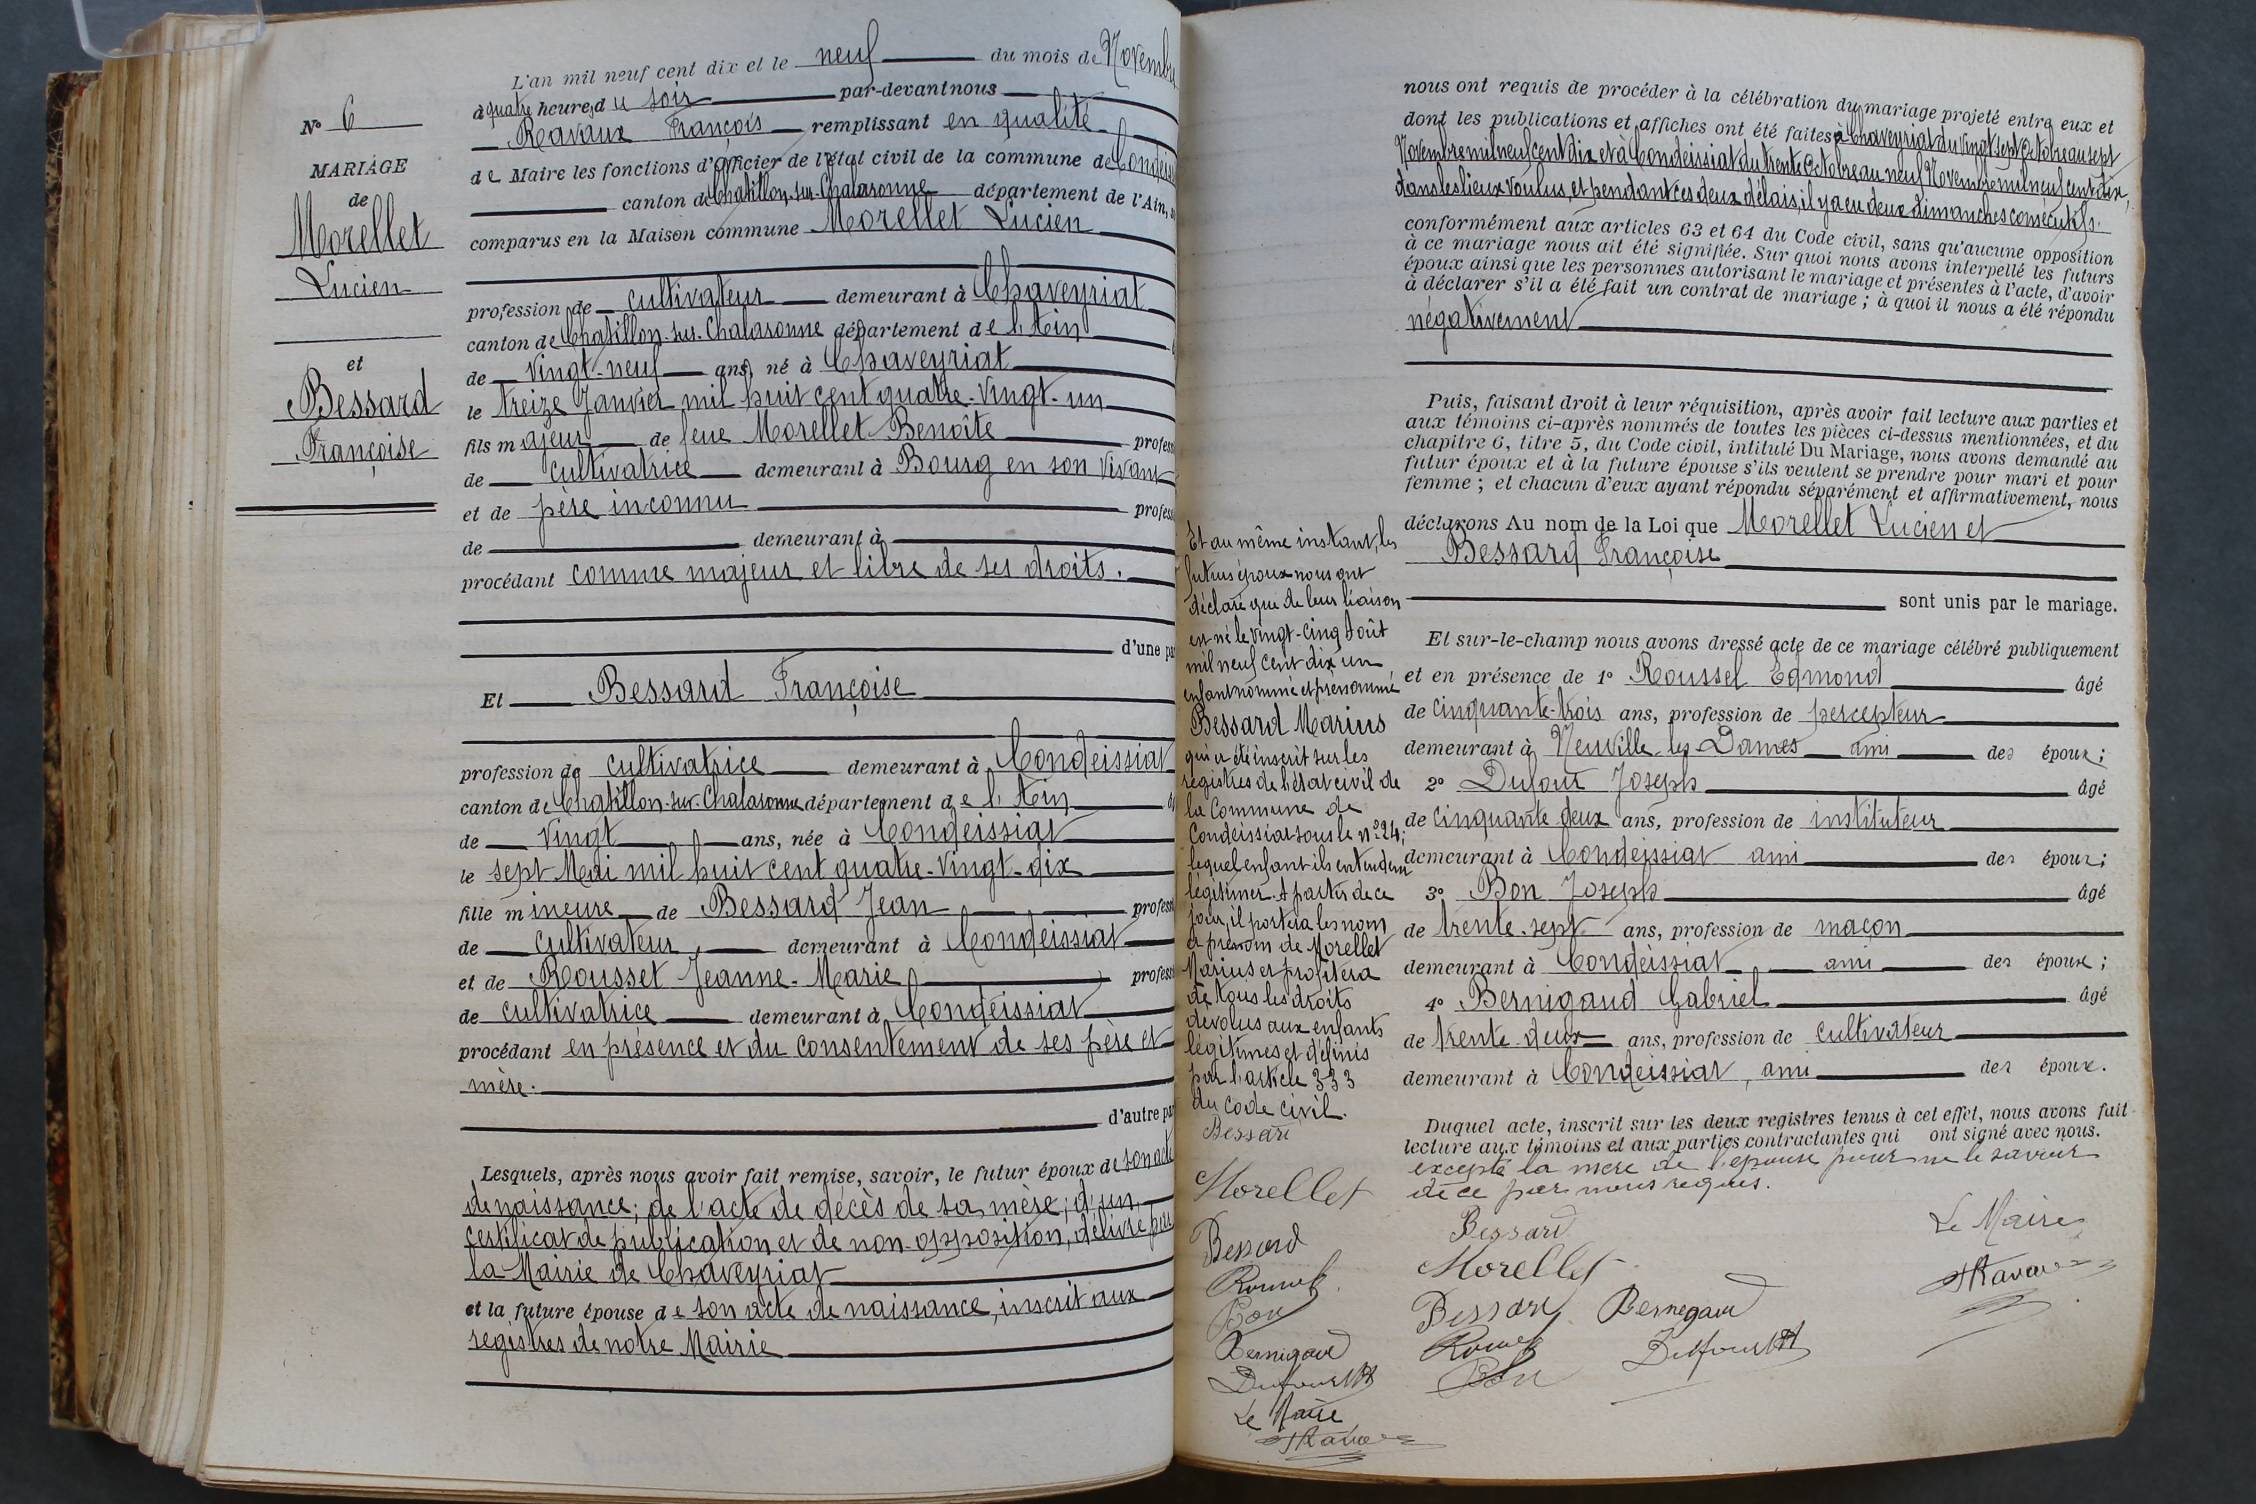 N° 6
MARIAGE
de
Morellet
Lucien
et
Bessard
Françoise
L'an mil neuf cent dix et le neuf du mois de Novembre
à quatre heures du soir par-devant nous
Ravaux François remplissant en qualité
de Maire les fonctions d'officier de l'état civil de la commune de Condeissiat
canton de Chatillon-sur-Chalaronne département de l'Ain,
comparus en la Maison commune Morellet Lucien
profession de cultivateur demeurant à Chaveyriat
canton de Chatillon-sur-Chalaronne département de l'Ain
de vingt-neuf ans, né à Chaveyriat
le treize Janvier mil huit cent quatre-vingt-un
fils majeur de feue Morellet Benoîte profess
de cultivatrice demeurant à Bourg en son vivant
et de père inconnu profess
de demeurant à
procédant comme majeur et libre de ses droits.
d'une pa
Et Bessard Françoise
profession de cultivatrice demeurant à Condeissiat
canton de Chatillon-sur-Chalaronne département de l'Ain
de vingt ans, née à Condeissiat
le sept Mai mil huit cent quatre-vingt-dix
fille mineure de Bessard Jean profess
de cultivateur, demeurant à Condeissiat
et de Rousset Jeanne-Marie profess
de cultivatrice demeurant à Condeissiat
procédant en présence et du consentement de ses père et
mère.
d'autre par
Lesquels, après nous avoir fait remise, savoir, le futur époux de son acte
de naissance; de l'acte de décès de sa mère; d'un
certificat de publication et de non-opposition, délivré par
la Mairie de Chaveyriat
et la future épouse de son acte de naissance, inscrit aux
registres de notre Mairie
nous ont requis de procéder à la célébration du mariage projeté entre eux et
dont les publications et affiches ont été faites à Chaveyriat du vingt sept Octobre au sept
Novembre mil neuf cent dix et à Condeissiat du trente Octobre au neuf Novembre mil neuf cent dix,
dans les lieux voulus, et pendant ces deux délais, il y a eu deux dimanches consécutifs.
conformément aux articles 63 et 64 du Code civil, sans qu'aucune opposition
à ce mariage nous ait été signifiée. Sur quoi nous avons interpellé les futurs
époux ainsi que les personnes autorisant le mariage et présentes à l'acte, d'avoir
à déclarer s'il a été fait un contrat de mariage; à quoi il nous a été répondu
négativement
Puis, faisant droit à leur réquisition, après avoir fait lecture aux parties et
aux témoins ci-après nommés de toutes les pièces ci-dessus mentionnées, et du
chapitre 6, titre 5, du Code civil, intitulé Du Mariage, nous avons demandé au
futur époux et à la future épouse s'ils veulent se prendre pour mari et pour
femme; et chacun d'eux ayant répondu séparément et affirmativement, nous
déclarons Au nom de la Loi que Morellet Lucien et
Bessard Françoise
sont unis par le mariage.
Et sur-le-champ nous avons dressé acte de ce mariage célébré publiquement
et en présence de 1° Roussel Edmond âgé
de cinquante-trois ans, profession de percepteur
demeurant à Neuville-les-Dames ami des époux;
2° Dufour Joseph âgé
de cinquante deux ans, profession de instituteur
demeurant à Condeissiat ami des époux;
3° Bon Joseph âgé
de trente-sept ans, profession de maçon
demeurant à Condeissiat ami des époux;
4° Bernigaud Gabriel âgé
de trente-deux ans, profession de cultivateur
demeurant à Condeissiat, ami des époux.
Duquel acte, inscrit sur les deux registres tenus à cet effet, nous avons fait
lecture aux témoins et aux parties contractantes qui ont signé avec nous.
excepté la mère de l'épouse pour ne le savoir
de ce par nous requis.
Bessard
Morellet
Bessard Bernigaud
Dufour
Bon
Le Maire
Ravaux
Et au même instant, les
futurs époux nous ont
déclaré que de leur liaison
est né le vingt-cinq Août
mil neuf cent dix un
enfant nommé et prénommé
Bessard Marius
qui a été inscrit sur les
registres de l'état civil de
la Commune de
Condeissiat sous le n° 24;
lequel enfant ils entendent
légitimer. A partir de ce
jour, il portera les nom
et prénom de Morellet
Marius et profitera
de tous les droits
dévolus aux enfants
légitimes et définis
par l'article 333
du code civil.
Bessard
Morellet
Bessard
Bon
Bernigaud
Dufour
Le Maire
Ravaux